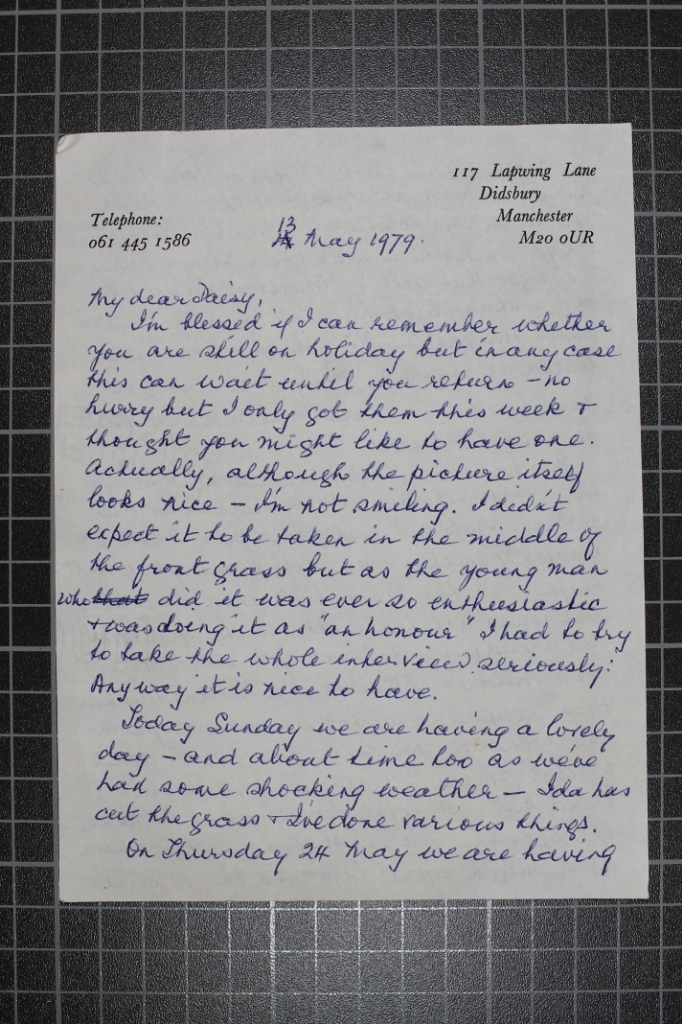 117 Lapwing Lane
Didsbury
Manchester
M20 0UR
Telephone:
061 445 1586
13 May 1979.
My dear Daisy,
I'm blessed if I can remember whether
you are still on holiday but in any case
this can wait until you return - no
hurry but I only got them this week &
thought you might like to have one.
Actually, although the picture itself
looks nice - I'm not smiling. I didn't
expect it to be taken in the middle of
the front grass but as the young man
who that did it was ever so enthusiastic
& was doing it as "an honour" I had to try
to take the whole interview seriously!
Anyway it is nice to have.
Today Sunday we are having a lovely
day - and about time too as we've
had some shocking weather - Ida has
cut the grass & I've done various things.
On Thursday 24 May we are having